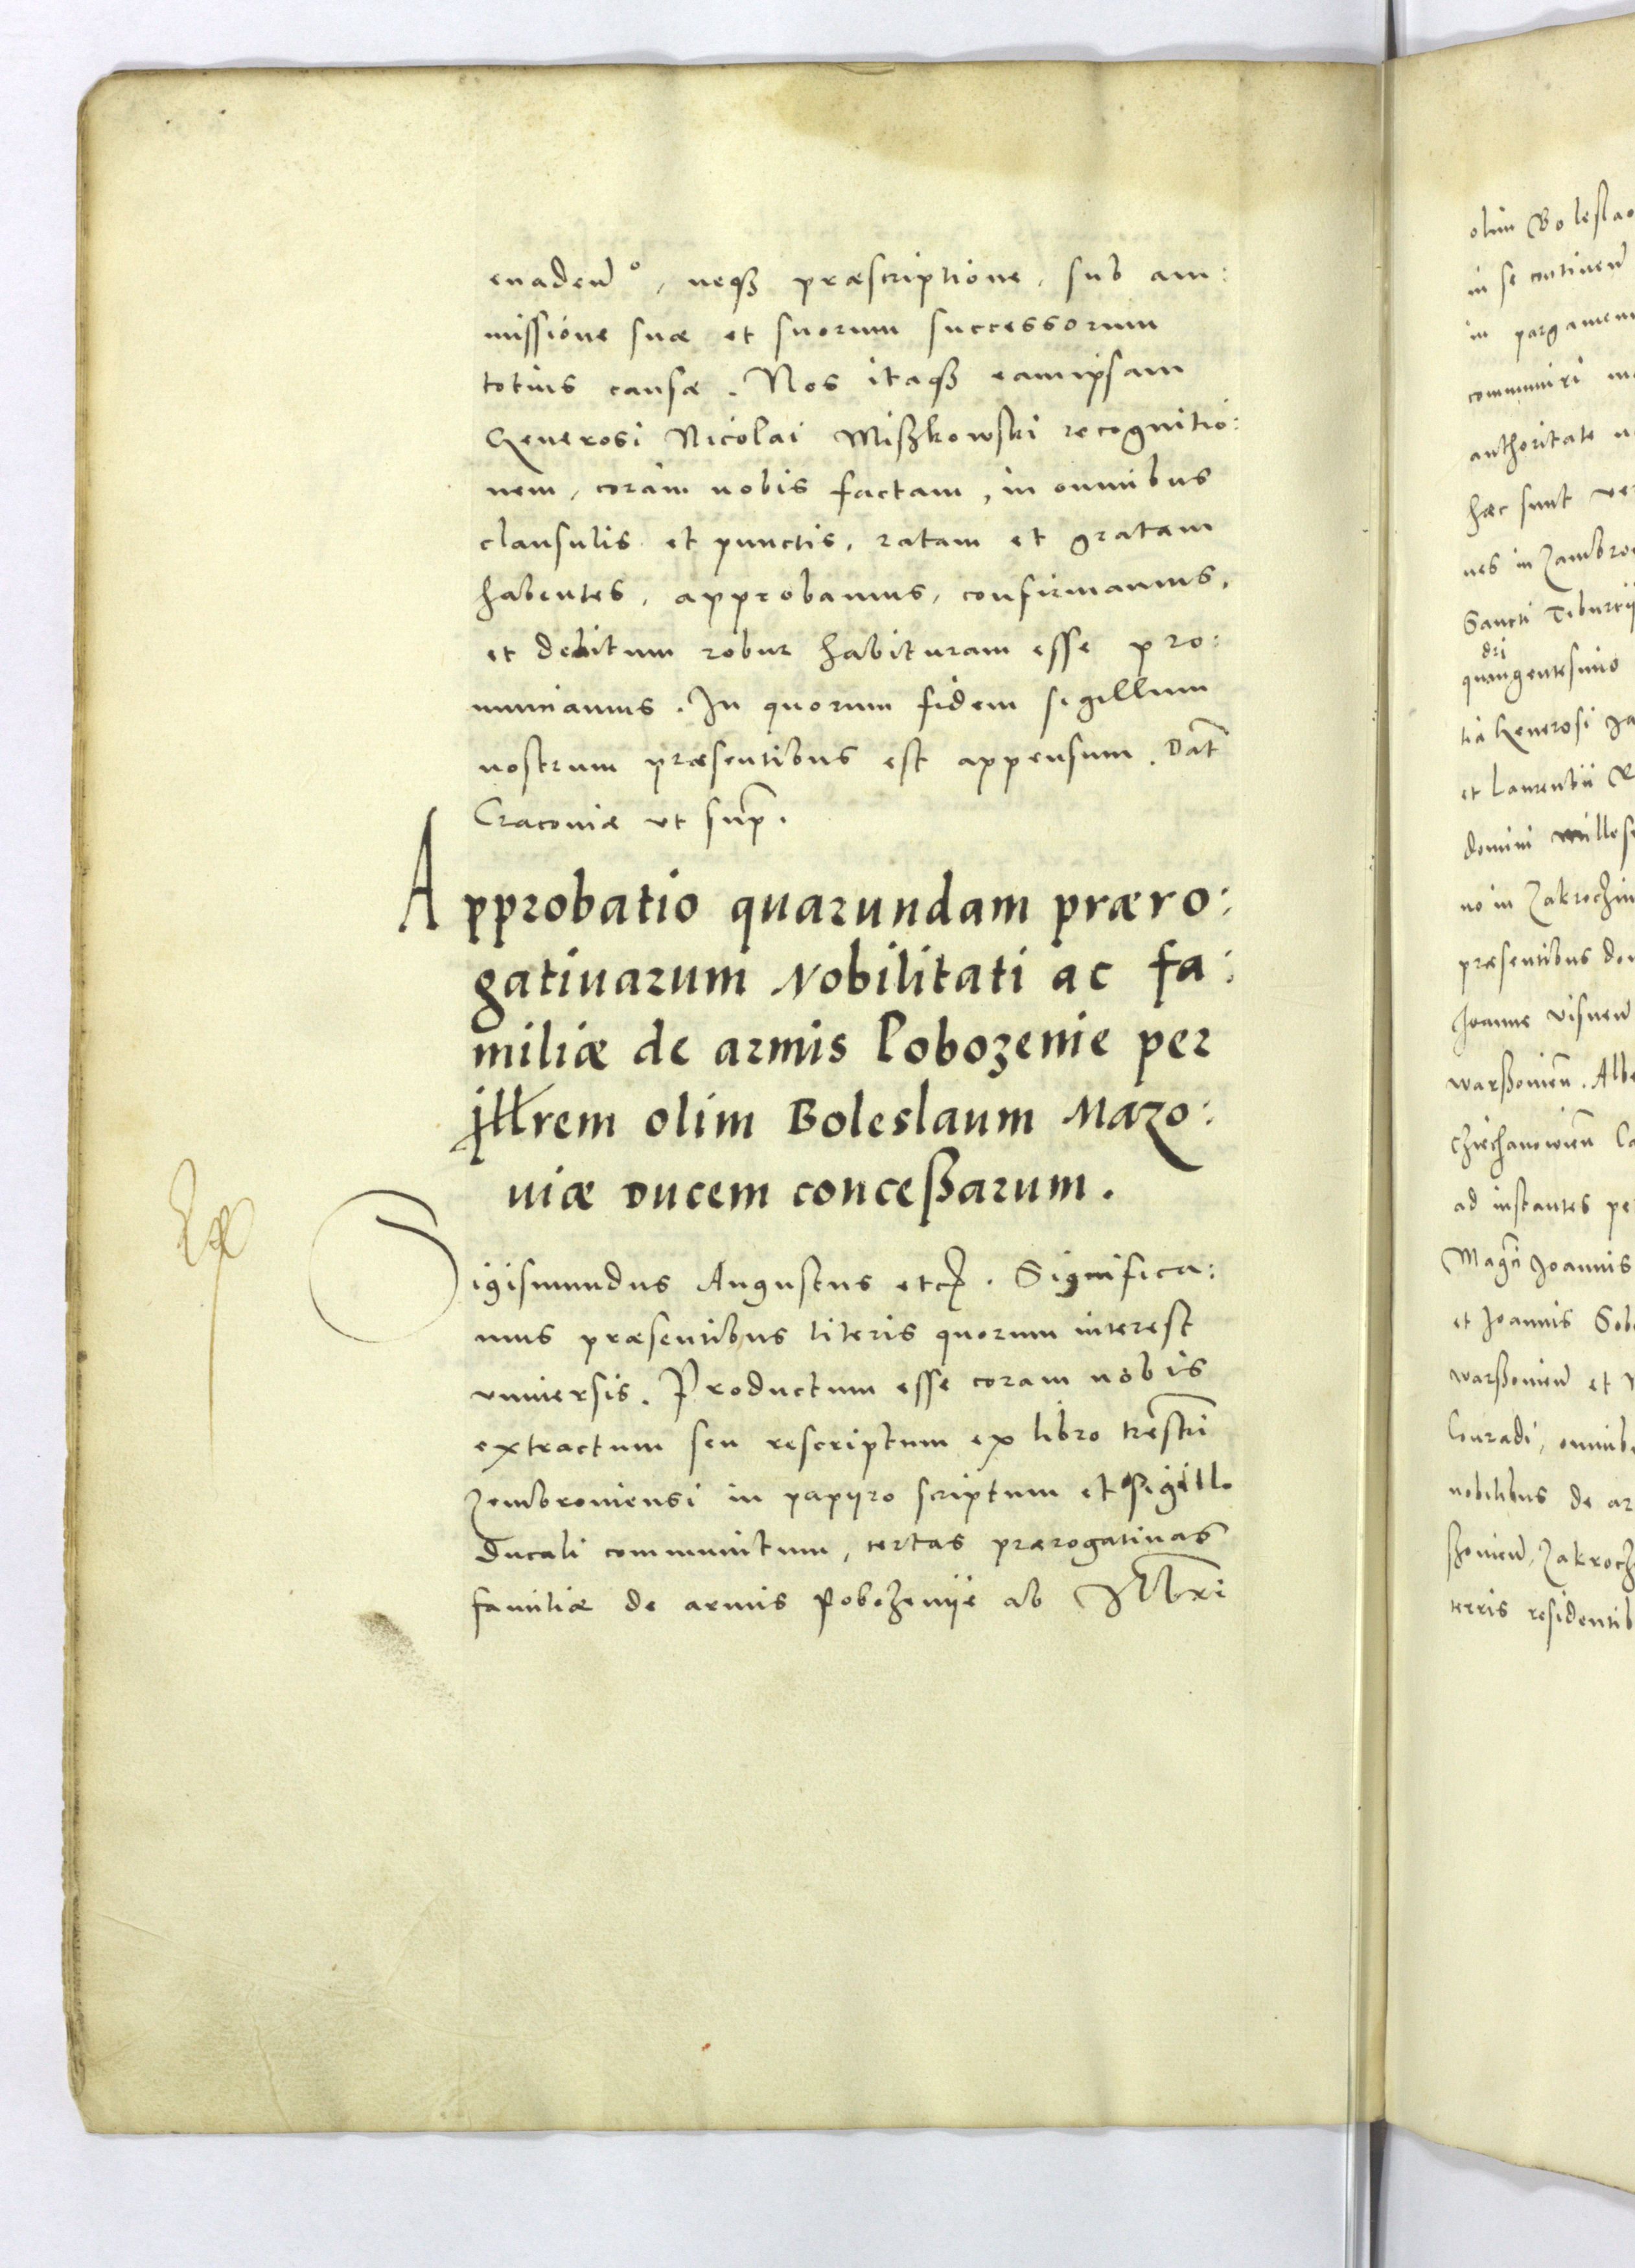 euaden͂º, neqꝫ præscriptione, sub am:
missione suæ et suorum successorum
totius causæ. Nos itaqꝫ eamipsam
Generosi Nicolai Miszkowski recognitio:
nem, coram nobis factam, in omnibus
clausulis et punctis, ratam et gratam
habentes, approbamus, confirmamus,
et debitum robur habituram esse pro:
nunciamus. In quorum fidem sigillum
nostrum præsentibus est appensum. Dat͂
Cracouiæ ut sup͂.
Approbatio quarundam præro:
gatiuarum Nobilitati ac fa:
miliæ de armis Pobozenie per
illrem olim Boleslaum Mazo:
uiæ Ducem conceßarum.
Sigismundus Augustus etc. Significa:
mus præsentibus literis quorum interest
vniuersis. Productum esse coram nobis
extractum seu rescriptum ex libro tr̃estri
Zembroniensi in papyro scriptum et sigillo
Ducali communitum, certas prærogatiuas
familiæ de armis Pobozenije ab Illri
olim Boleslao
in se continen͂
in pargamen
communiri
authoritate
hæc sunt
nes in Zambro
Sancti Tiburtij
dri
quangentesimo
tia Generosi
et Laurentii
domini milles
no in Zakrochin
præsentibus
Joanne Visnen͂
Warßouien͂. Alb
Chiechanowien͂
ad instantes pe
Magci Joannis
et Joannis Sob
Warßouien͂ et
Conradi, omnib
nobilibus de ar
ßouien͂, Zakroch
terris residentib